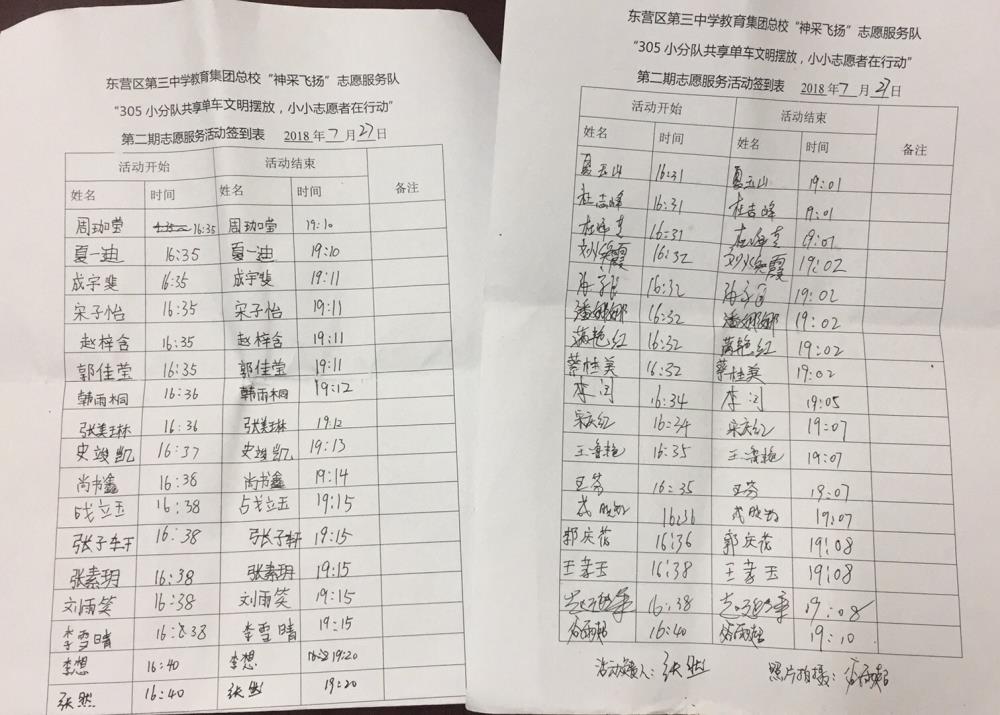 东营区第三中学教育集团总校“神采飞扬”志愿服务队
“305小分队共享单车文明摆放，小小志愿者在行动”
第二期志愿服务活动签到表 2018年7月27日
活动开始 活动结束 备注
姓名 时间 姓名 时间
周珈莹 16:35 周珈莹 19:10
夏一迪 16:35 夏一迪 19:10
成宇斐 16:35 成宇斐 19:11
宋子怡 16:35 宋子怡 19:11
赵梓含 16:35 赵梓含 19:11
郭佳莹 16:35 郭佳莹 19:11
韩雨桐 16:36 韩雨桐 19:12
张美琳 16:36 张美琳 19:12
史竣凯 16:37 史竣凯 19:13
尚书鑫 16:38 尚书鑫 19:14
战立玉 16:38 占戈立玉 19:15
张子轩 16:38 张子轩 19:15
张素玥 16:38 张素玥 19:15
刘雨笑 16:38 刘雨笑 19:15
李雪晴 16:38 李雪晴 19:15
李想 16:40 李想 19:20
张然 16:40 张然 19:20
东营区第三中学教育集团总校“神采飞扬”志愿服务队
“305小分队共享单车文明摆放，小小志愿者在行动”
第二期志愿服务活动签到表 2018年7月27日
活动开始 活动结束 备注
姓名 时间 姓名 时间
夏玉山 16:31 夏玉山 19:01
杜志峰 16:31 杜吉峰 9:01
16:31 19:01
刘焕霞 16:32 刘焕霞 19:02
16:32 19:02
潘娜娜 16:32 潘娜娜 19:02
蒲艳红 16:32 蒲艳红 19:02
蔡桂美 16:32 蔡桂美 19:02
李闪 16:34 李闪 19:05
宋庆红 16:34 宋庆红 19:07
王鲁艳 16:35 王鲁艳 19:07
王芬 16:35 王芬 19:07
16:36 19:07
郭庆蓓 16:36 郭庆蓓 19:08
王孝玉 16:38 王孝玉 19:08
16:38 19:08
16:40 19:10
活动负责人：张然 照片拍摄：